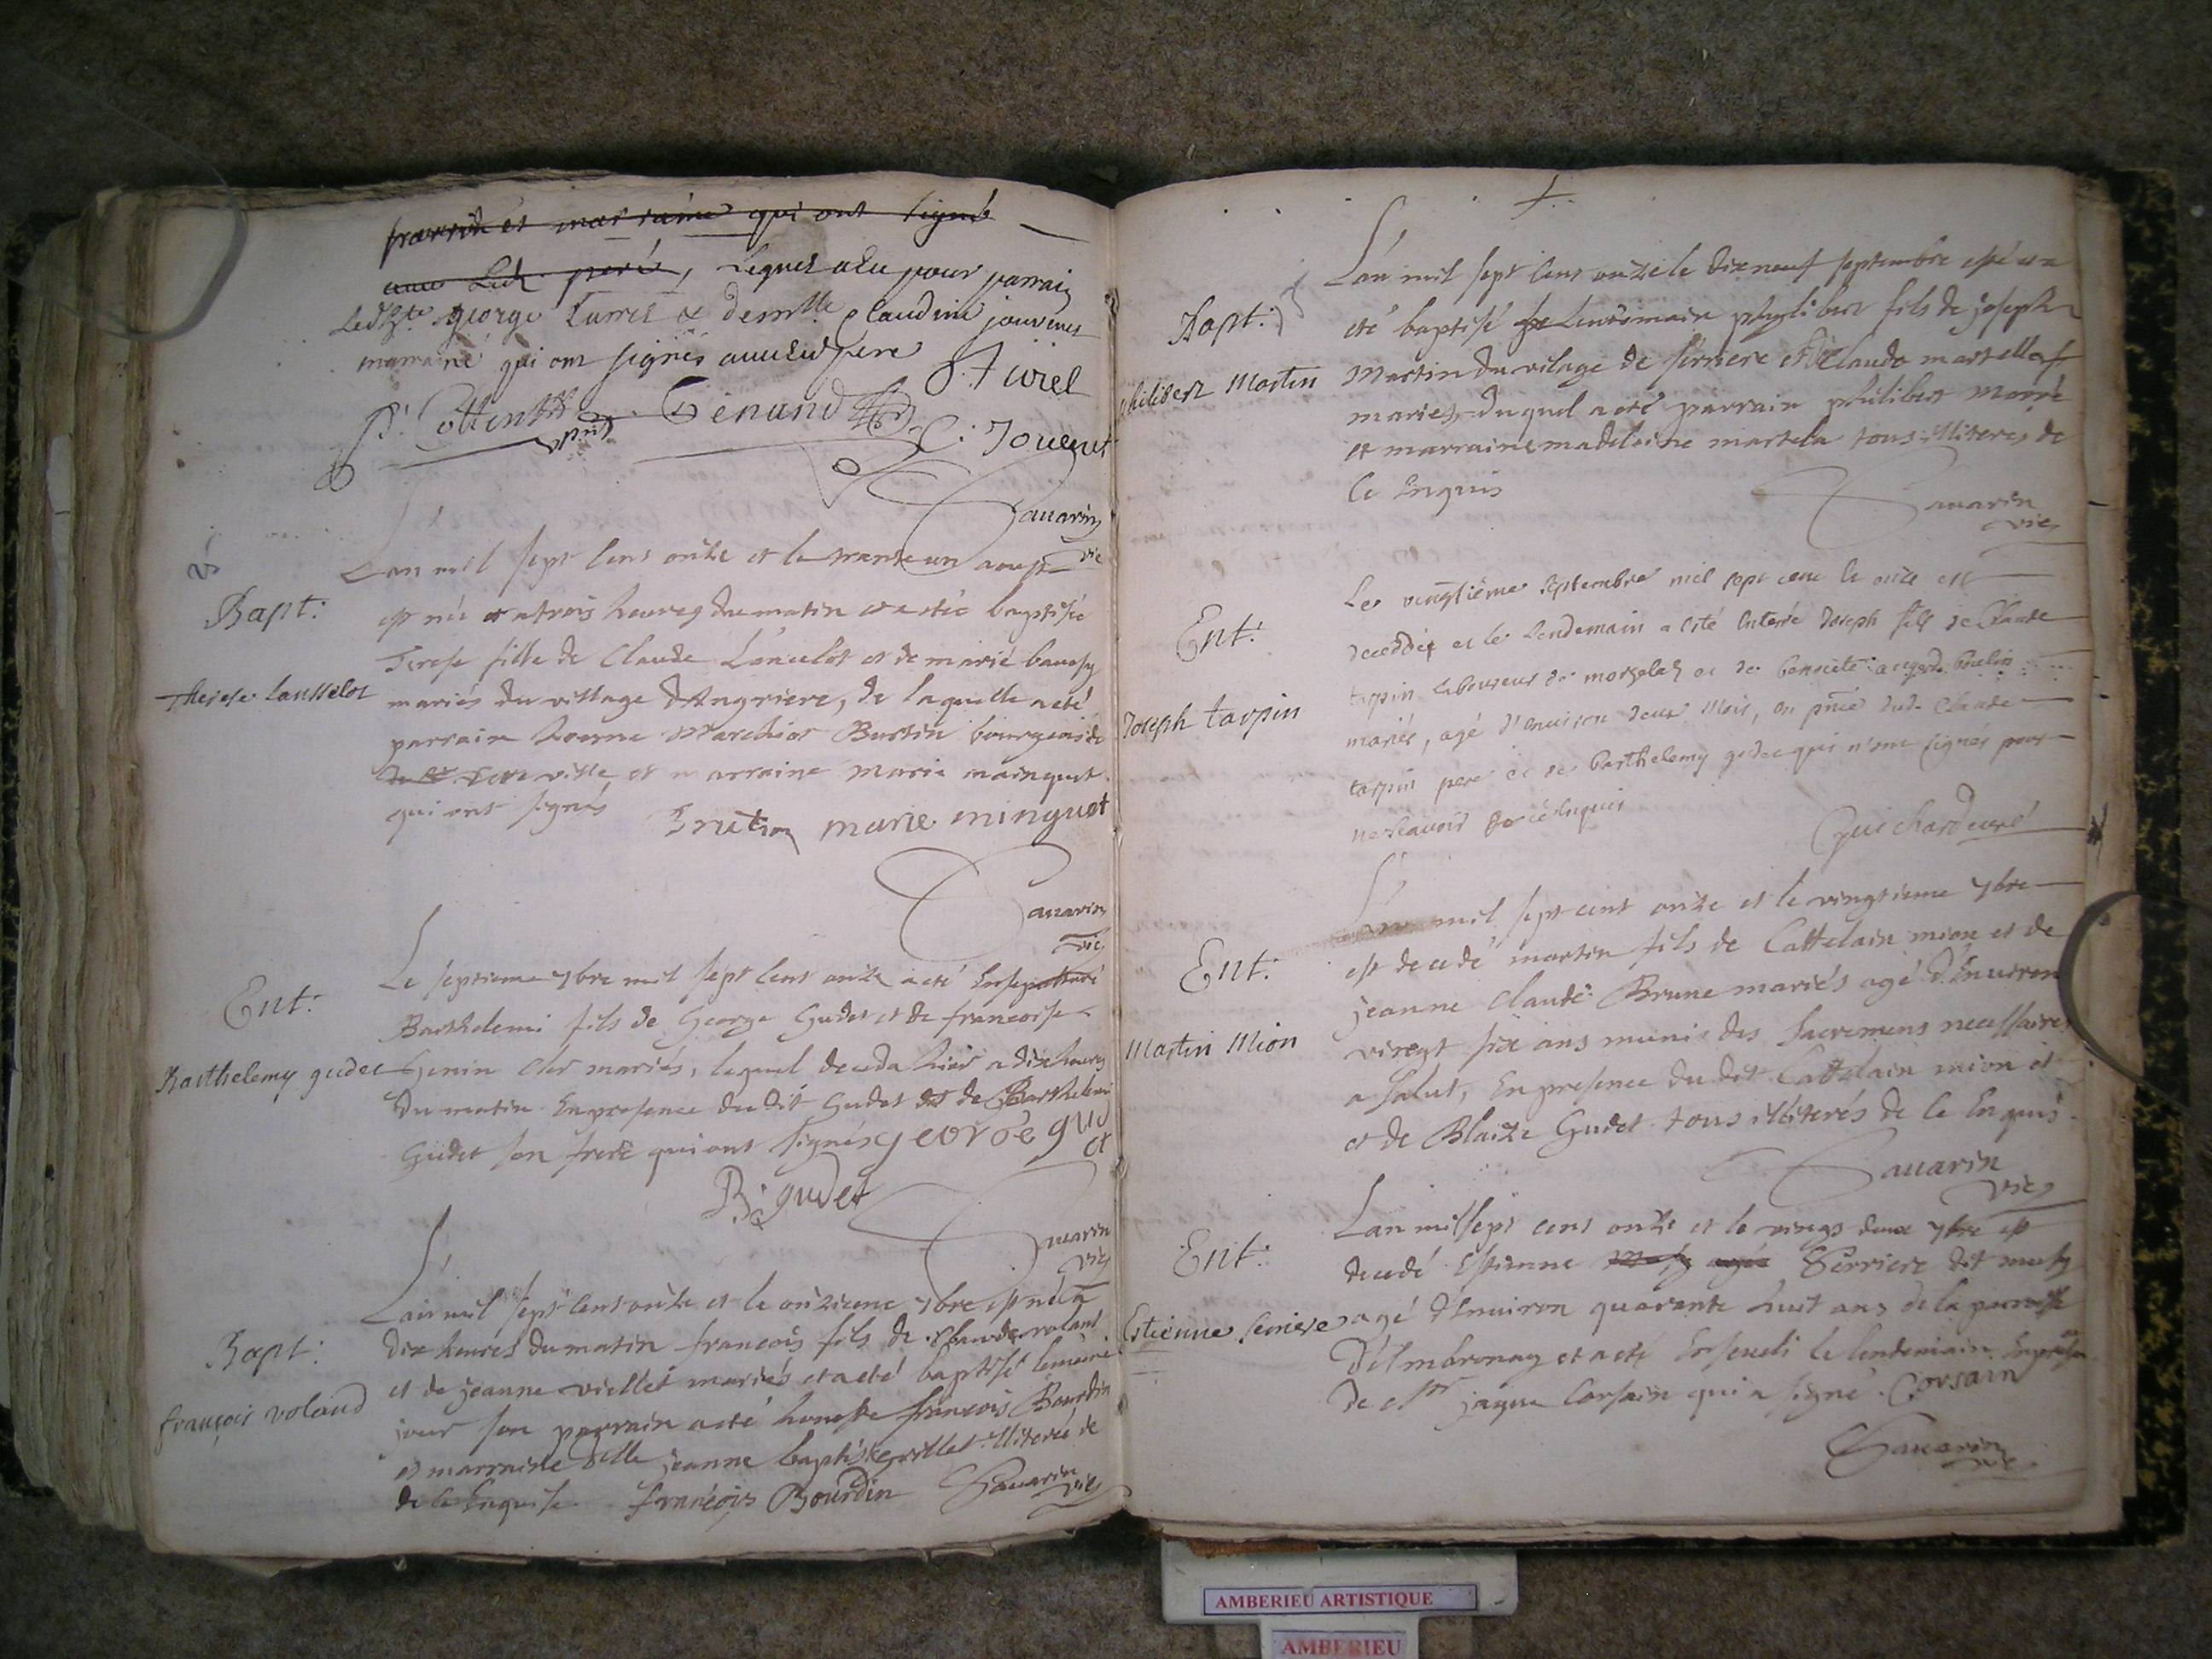 parrin et marraine qui ont signé
avec Led. pere, Lequel a eu pour parrain
george & demlle claudine jouvenet
marraine qui ont signés avec led pere
J. Turel
Genand
C. Jouvent
Savarin
vic
Bapt:
Therese Lansselot
Lan mil sept cens onze et le trante un aoust
est née a trois heures du matin et a etée baptisée
Terese fille de Claude Lancelot et de marie
mariés du village d'Angriere, de laquelle a eté
parrain Marchior Burtin bourgeois de
cette ville et marraine marie mainguet
qui ont signés
marie minguet
Savarin
vic
Ent:
Barthelemy gudet
Le septieme 7bre mil sept cens onze a eté Ensepulturé
Barthelemi fils de George Gudet et de francoise
Genin mariés, lequel deceda hier a dix heures
du matin En presence du dit Gudet et de Barthelemi
Gudet son frere qui ont signés george gud
et
B. gudet
Savarin
vic
Bapt:
françois voland
Lan mil sept cens onze et le onzieme 7bre est né a
dix heures du matin francois fils de Claude volant
et de jeanne viellet mariés et a eté baptisé le meme
jour son parrain a eté honeste francois Bourdin
et marraine dlle jeanne baptiste illiterée de
de ce Enquise françois Bourdin Savarin
vic
Bapt:
philibert Martin
Lan mil sept cens onze le dix neuf septembre est né et a
eté baptisé Lendemain phylibert fils de joseph
Martin du vilage de serriere et de Claudo martellaf
mariez duquel a eté parrain philibert
et marraine madelaine martela tous illiterés de
ce Enquis
Savarin
vic
Ent:
Joseph tarpin
Le vingtième septembre mil sept cent le onze est
decedé et le Lendemain a esté Enterré Joseph fils de Claude
tarpin laboureur de et de
mariés, agé d'environ deux Mois, en pnce dud. Claude
tarpin pere et de Barthelemy gudet qui n'ont signés pour
ne scavoir de ce Enquis
Guichard curé
Ent:
Martin Mion
Lan mil sept cent onze et le vingtieme 7bre
est decedé martin fils de Cattelain mion et de
jeanne Claude Brune mariés agé d'Environ
vingt six ans muni des sacremens necessaires
a salut, En presence du dit Cattelain mion et
et de Blaize Gudet tous illiterés de ce Enquis
Savarin
vic
Ent:
Estienne serriere
Lan mil sept cens onze et le vingt deux 7bre est
decedé Estienne Serriere dit
agé d'Environ quarante huit ans de la parroisse
D'Ambronay et a eté Enseveli le lendemain En presence
de Mr jaque Corsain qui a signé. Corsain
Savarin
vic
AMBERIEU ARTISTIQUE
AMBERIEU